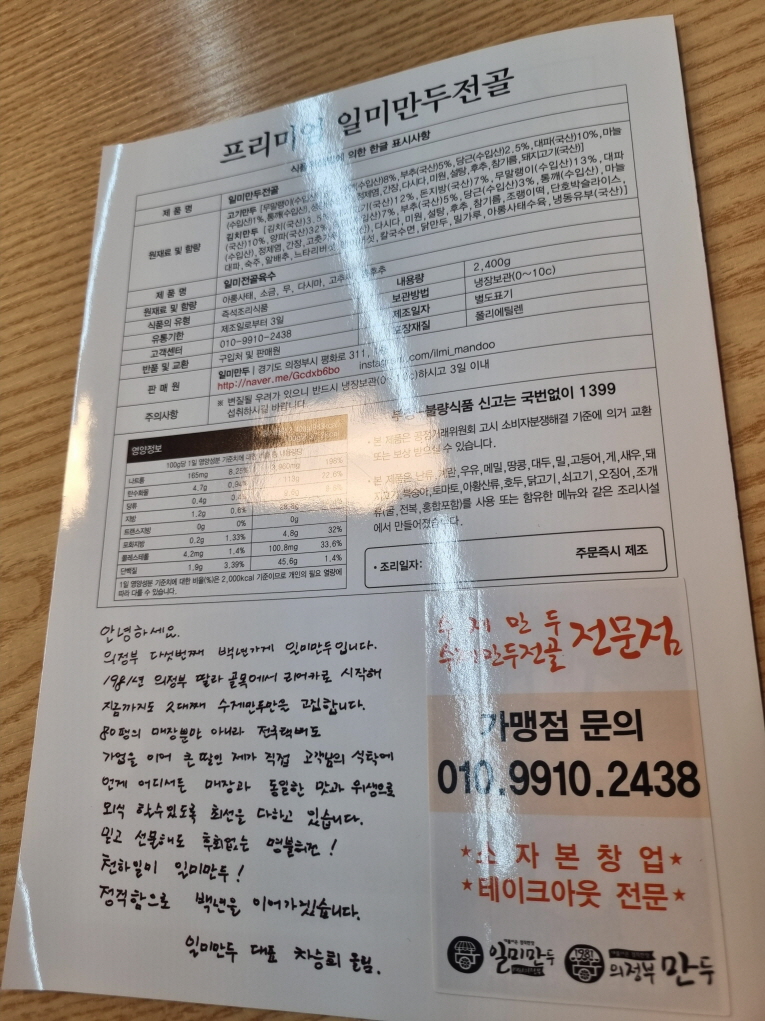 프리미엄 일미만두전골
의한 한글 표시사항
제 품 명
일미만두전골
원재료 및 함량
고기만두 [무말랭이(수입산) 8%, 부추(국산)5%, 당근(수입산)2.5%, 대파(국산)10%, 마늘
(수입산)1%, 통깨(수입산), 정제염, 간장, 다시다, 미원, 설탕, 후추, 참기름, 돼지고기(국산)]
김치만두 [김치(국산) (국산)12%, 돈지방(국산)7%, 무말랭이(수입산)13%, 대파
(국산)10%, 양파(국산)32% 7%, 부추(국산)5%, 당근(수입산)3%, 통깨(수입산), 마늘
(수입산), 정제염, 간장, 다시다, 미원, 설탕, 후추, 참기름, 조랭이떡, 단호박슬라이스,
대파, 숙주, 알배추, 느타리버섯, 칼국수면, 닭만두, 밀가루, 아롱사태수육, 냉동유부(국산)]
제 품 명
일미전골육수
원재료 및 함량
아롱사태, 소금, 무, 다시마, 후추
식품의 유형
즉석조리식품
유통기한
제조일로부터 3일
고객센터
010-9910-2438
반품 및 교환
구입처 및 판매원
내용량
2,400g
보관방법
냉장보관(0~10c)
제조일자
별도표기
포장재질
폴리에틸렌
판 매 원
일미만두 | 경기도 의정부시 평화로 311,
http://naver.me/Gcdxb6bo instagram.com/ilmi_mandoo
주의사항
※ 변질될 우려가 있으니 반드시 냉장보관(0~10c)하시고 3일 이내
섭취하시길 바랍니다.
영양정보
100g당 1일 영양성분 기준치에 대한
나트륨 165mg 8.25% 198%
탄수화물 4.7g
당류 0.4g
지방 1.2g 0.6%
트랜스지방 0g 0% 0g
포화지방 0.2g 1.33% 4.8g 32%
콜레스테롤 4.2mg 1.4% 100.8mg 33.6%
단백질 1.9g 3.39% 45.6g 1.4%
1일 영양성분 기준치에 대한 비율(%)은 2,000kcal 기준이므로 개인의 필요 열량에
따라 다를 수 있습니다.
불량식품 신고는 국번없이 1399
• 본 제품은 공정거래위원회 고시 소비자분쟁해결 기준에 의거 교환
또는 보상 받으실 수 있습니다.
• 본 제품은 난류, 우유, 메밀, 땅콩, 대두, 밀, 고등어, 게, 새우, 돼
지고기, 복숭아, 토마토, 아황산류, 호두, 닭고기, 쇠고기, 오징어, 조개
류(굴, 전복, 홍합포함)를 사용 또는 함유한 메뉴와 같은 조리시설
에서 만들어졌습니다.
• 조리일자: 주문즉시 제조
안녕하세요.
의정부 다섯번째 백년가게 일미만두입니다.
1981년 의정부 딸라 골목에서 리어카로 시작해
지금까지도 2대째 수제만두만을 고집합니다.
80평의 매장뿐만 아니라 전국택배도
가업을 이어 큰 딸인 제가 직접 고객님의 식탁에
언제 어디서든 매장과 동일한 맛과 위생으로
외식 할수있도록 최선을 다하고 있습니다.
믿고 선물해도 후회없는 명불허전!
천하일미 일미만두!
정직함으로 백년을 이어가겠습니다.
일미만두 대표 차승희 올림.
수 제 만 두
수제만두전골 전문점
가맹점 문의
010.9910.2438
★소 자 본 창 업★
★테이크아웃 전문★
일미만두
1981
의정부 만두